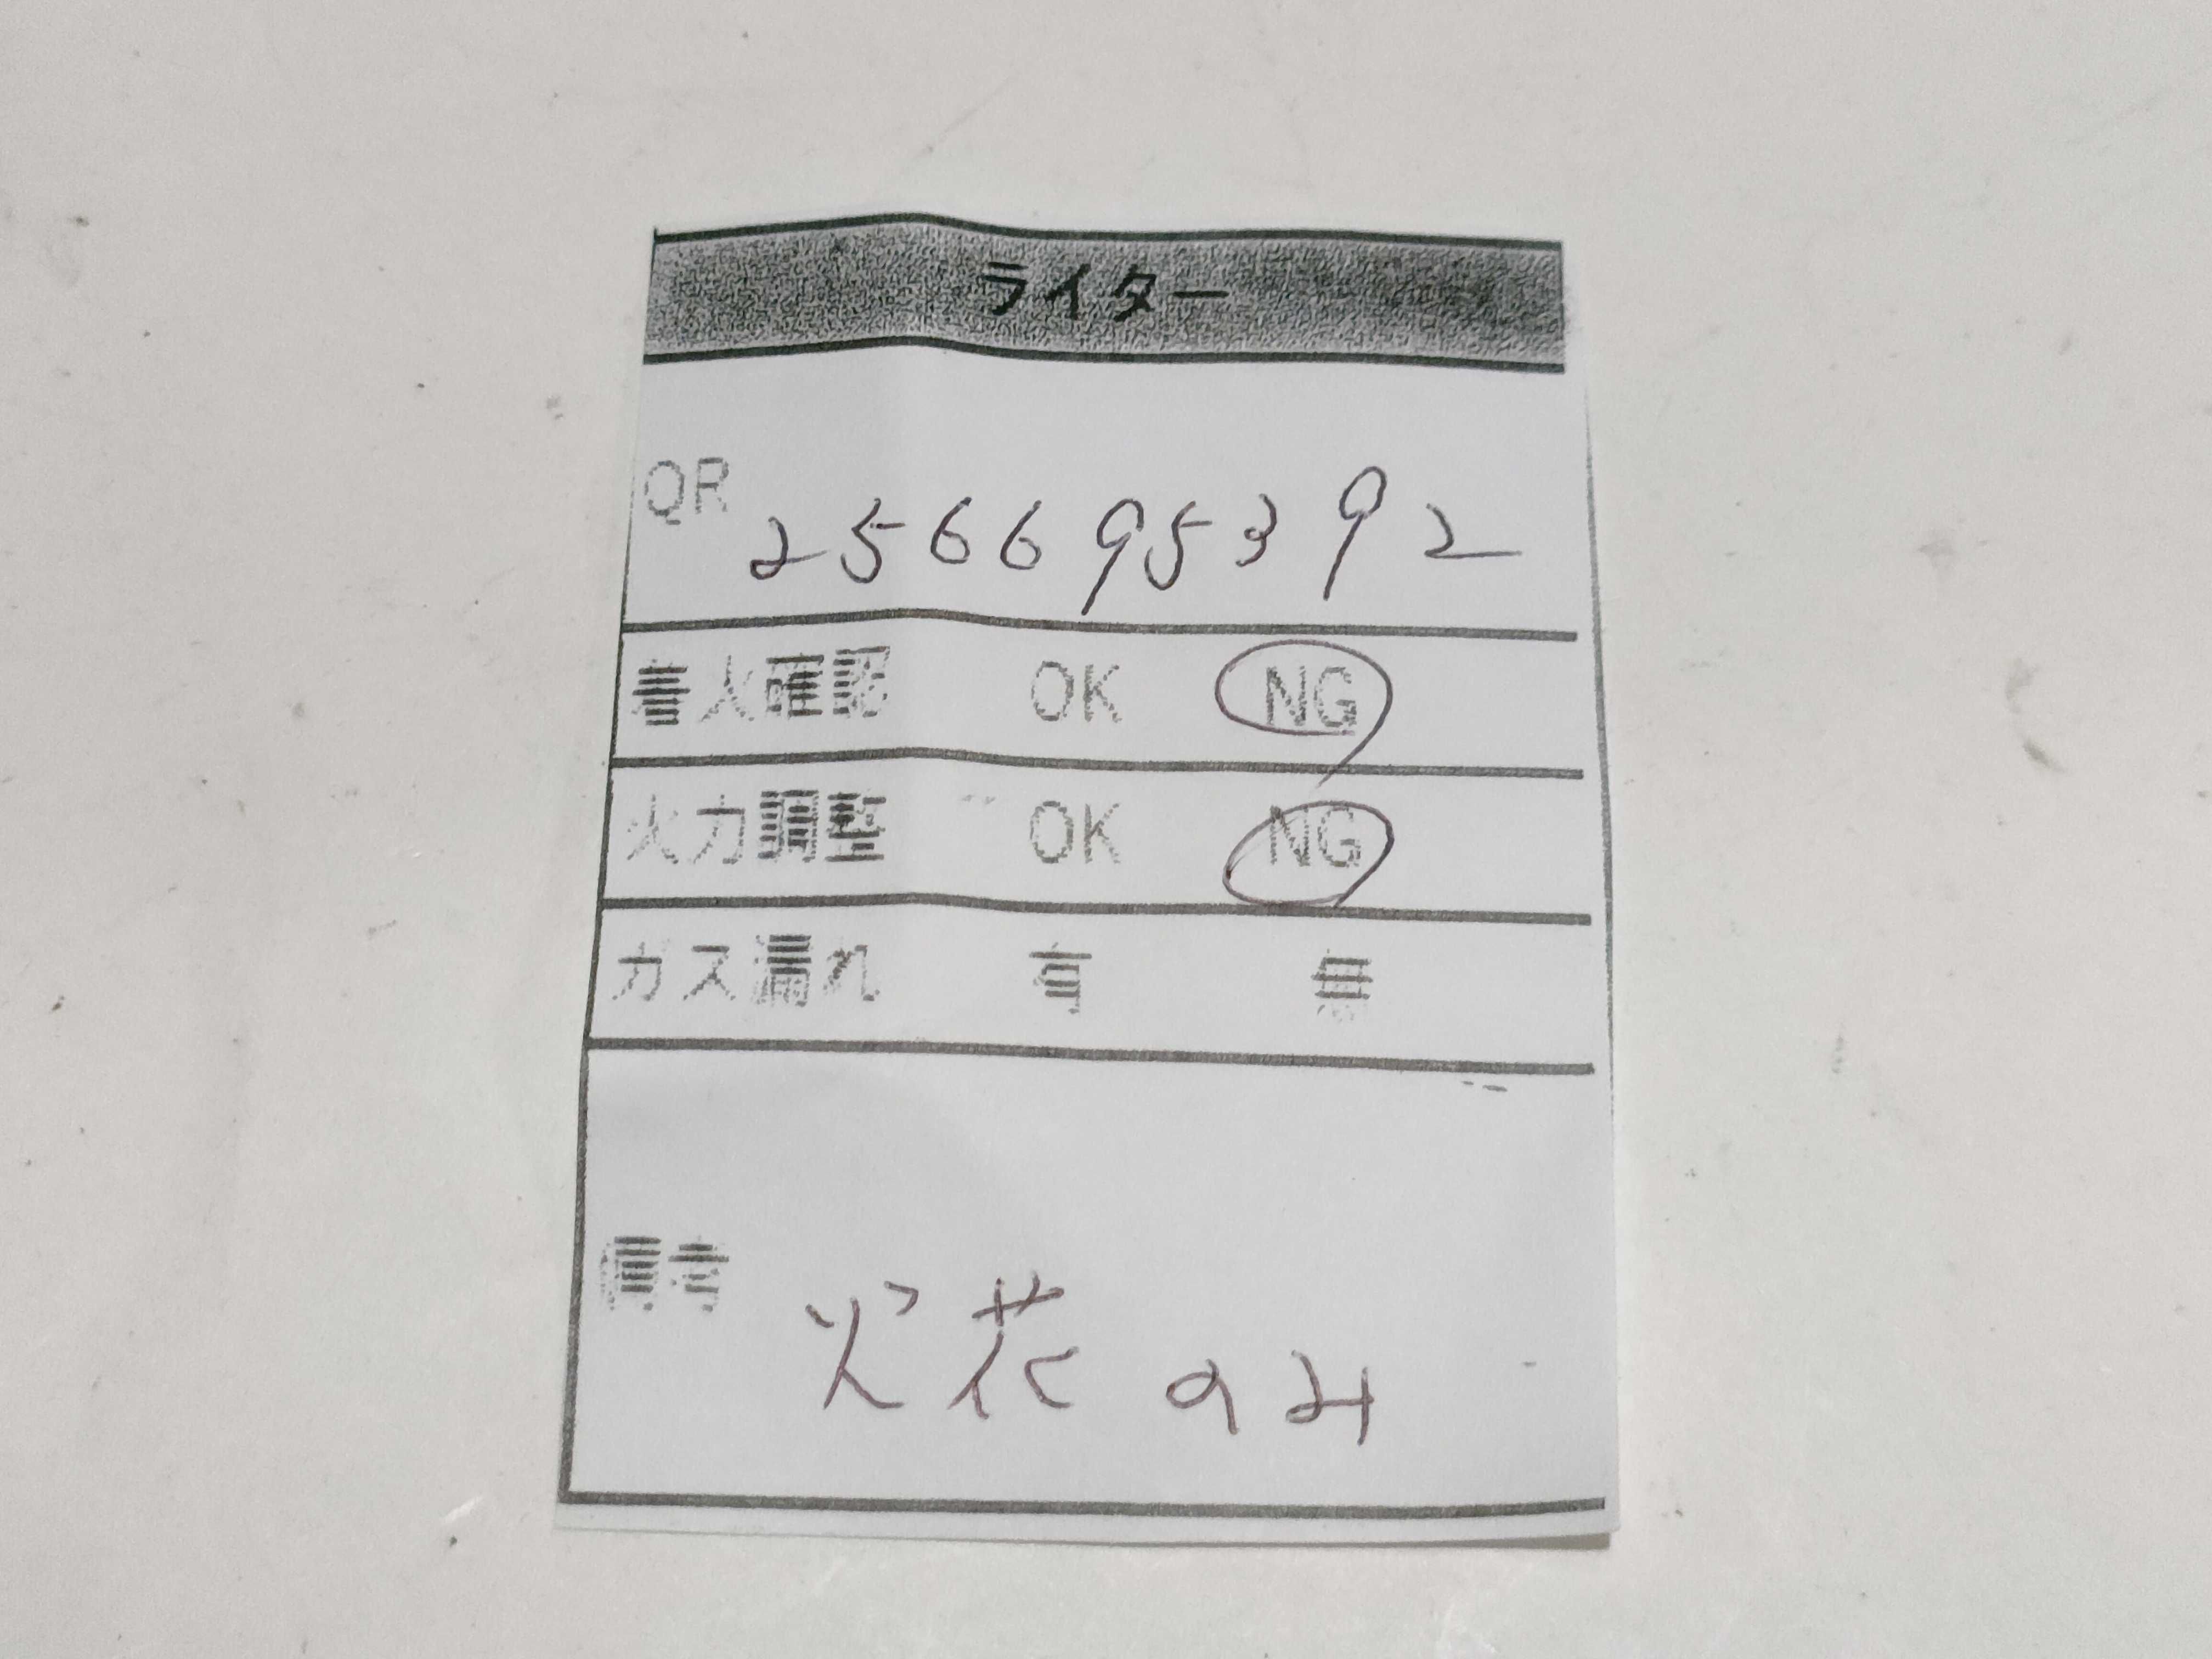 ライター
QR 256695392
着火確認 OK NG
火力調整 OK NG
ガス漏れ 有 無
備考 火花のみ